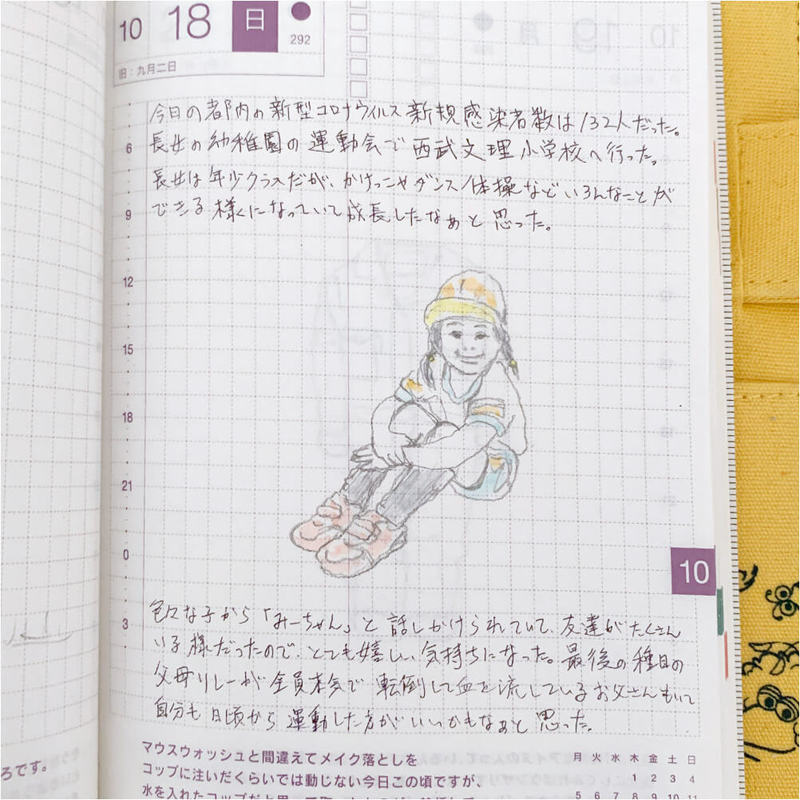 10 18 日
292
旧：九月二日
今日の都内の新型コロナウイルス新規感染者数は132人だった。
長女の幼稚園の運動会で西武文理小学校へ行った。
長女は年少クラスだが、かけっこやダンス/体操などいろんなことが
できる様になっていて成長したなぁと思った。
6
9
12
15
18
21
0
3
10
色々な子から「みーちゃん」と話しかけられていて、友達がたくさん
いる様だったので、とても嬉しい気持ちになった。最後の種目の
父母リレーが全員本気で転倒して血を流しているお父さんもいて
自分も日頃から運動した方がいいかもなぁと思った。
マウスウォッシュと間違えてメイク落としを
コップに注いだくらいでは動じない今日この頃ですが、
水を入れたコップだと思って
ろです。
月 火 水 木 金 土 日
1 2 3 4
5 6 7 8 9 10 11